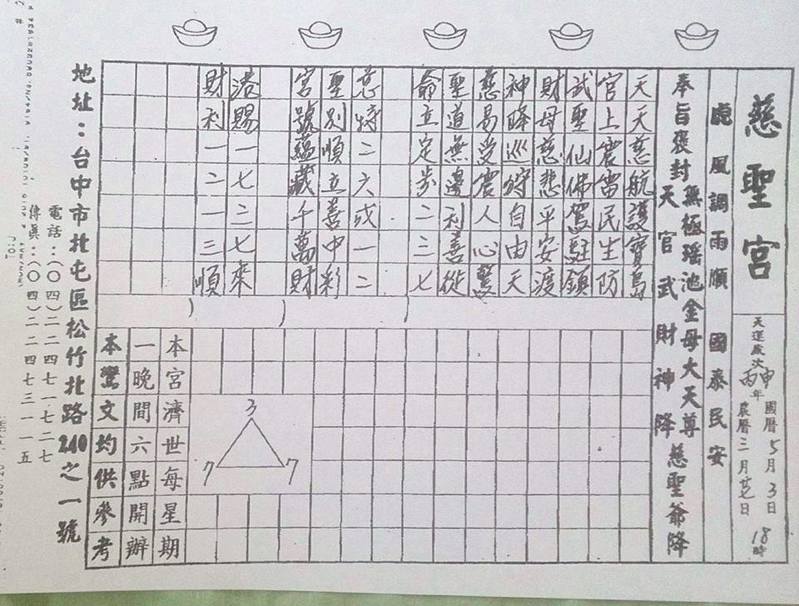 慈聖宮
天運歲次丙申年 國曆5月3日 農曆三月廿七日 18時
鹿風調雨順 國泰民安
奉旨褒封 無極瑤池金母大天尊 天官武財神降 慈聖爺降
天天慈航護寶島
官上震雷民生防
武聖仙佛駕駐鎮
財母慈悲平安渡
神降巡狩自由天
慈易受震人心驚
聖道無邊利善從
爺立定步二三七
慈特二六或一二
聖別順立善中彩
宮號蘊藏千萬財
港賜一七三七來
財利一二一三順
3
7
7
本宮濟世每星期
一晚間六點開辦
本鸞文均供參考
地址：台中市北屯區松竹北路240之一號
電話：(〇四)二二四七一七二七
傳眞：(〇四)二二四七三一一五